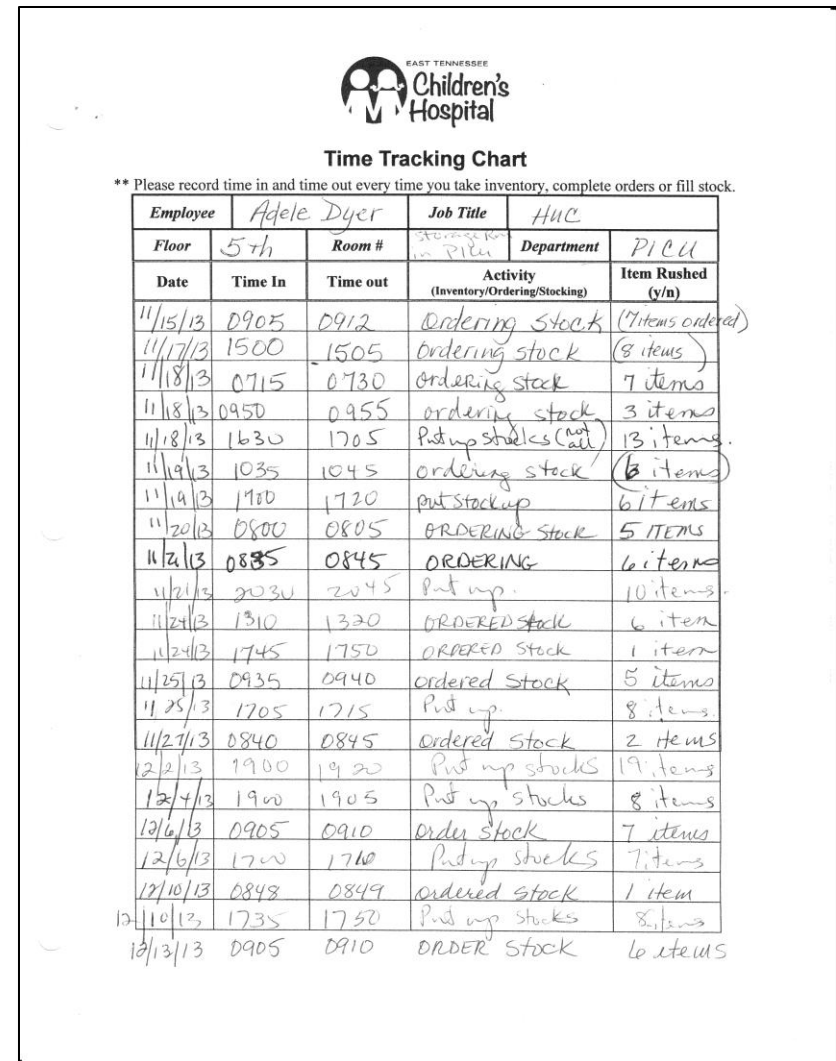 EAST TENNESSEE
Children's
Hospital
Time Tracking Chart
** Please record time in and time out every time you take inventory, complete orders or fill stock.
Employee Adele Dyer Job Title HUC
Floor 5th Room # Storage Rm in PICU Department PICU
Date Time In Time out Activity (Inventory/Ordering/Stocking) Item Rushed (y/n)
11/15/13 0905 0912 Ordering Stock (7 items ordered)
11/17/13 1500 1505 Ordering stock (8 items)
11/18/13 0715 0730 Ordering stock 7 items
11/18/13 0950 0955 ordering stock 3 items
11/18/13 1630 1705 Put up stocks (not all) 13 items.
11/19/13 1035 1045 ordering stock items)
11/19/13 1700 1720 put stock up 6 items
11/20/13 0800 0805 ORDERING Stock 5 ITEMS
11/21/13 0835 0845 ORDERING 6 items
11/21/13 2030 2045 Put up. 10 items.
11/24/13 1310 1320 ORDERED Stock 6 item
11/24/13 1745 1750 ORDERED Stock 1 item
11/25/13 0935 0940 ordered Stock 5 items
11/25/13 1705 1715 Put up. 8 items.
11/27/13 0840 0845 Ordered Stock 2 Items
12/2/13 1900 1920 Put up stocks 19 items
12/4/13 1900 1905 Put up stocks 8 items
12/6/13 0905 0910 Order Stock 7 items
12/6/13 1700 1710 Put up stocks 7 items
12/10/13 0848 0849 ordered Stock 1 item
12/10/13 1735 1750 Put up stocks 8 items
12/13/13 0905 0910 ORDER STOCK 6 items